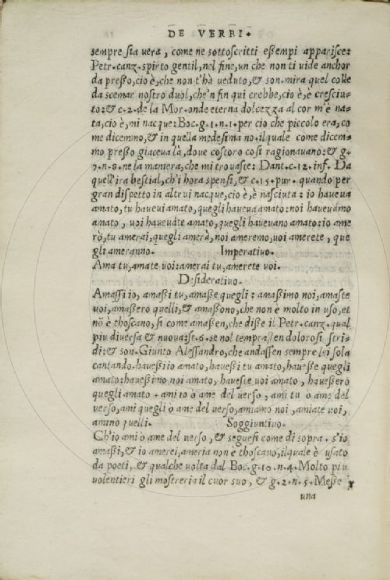 DE VERBI.
sempre sia vera, come ne sottoscritti essempi apparisce:
Petr. canz. spirto gentil, nel fine, un che non ti vide anchor
da presso, cio è, che non t'hà veduto, & son. mira quel colle
da scemar nostro duol, che'n fin qui crebbe, cio è, è cresciu-
to: & c. 2. de la Mor. onde eterna dolcezza al cor m'è na-
ta, cio è, mi nacque: Boc. g. 1. n. 1. per cio che piccolo era, co
me dicemmo, & in quella medesima no. il quale come dicem-
mo presso giaceua là, doue costoro cosi ragionauano: & g.
7. n. 8. ne la maniera, che mi trouaste: Dant. c. 12. inf. Da
quell'ira bestial, ch'i hora spensi, & c. 15. pur. quando per
gran dispetto in altrui nacque, cio è, è nasciuta: io haueua
amato, tu haueui amato, quegli haueua amato: noi hauevamo
amato, uoi hauevate amato, quegli haueuano amato: io ame
rò, tu amerai, quegli amerà, noi ameremo, uoi amerete, que
gli ameranno. Imperatiuo.
Ama tu, amate uoi: amerai tu, amerete uoi.
Desideratiuo.
Amassi io, amassi tu, amasse quegli: amassimo noi, amaste
uoi, amassero quelli, & amassono, che non è molto in uso, et
nõ è thoscano, si come amassen, che disse il Petr. canz. qual
piu diuersa & nuoua. st. 6. se nol temprassen dolorosi stri-
di: & son. Giunto Alessandro, che andassen sempre lei sola
cantando. hauessi io amato, hauessi tu amato, hauesse quegli
amato: hauessimo noi amato, haueste uoi amato, hauessero
quegli amato. ami io ò ame del uerso, ami tu ò ame del
uerso, ami quegli ò ame del uerso, amiamo noi, amiate uoi,
amino quelli. Soggiuntiuo.
Ch'io ami ò ame del uerso, & seguesi come di sopra. s'io
amassi, & io amerei, ameria non è thoscano, il quale è usato
da poeti, & qualche uolta dal Boc. g. 10. n. 4. Molto piu
uolentieri gli mosterria il cuor suo, & g. 2. n. 5. Messe
una